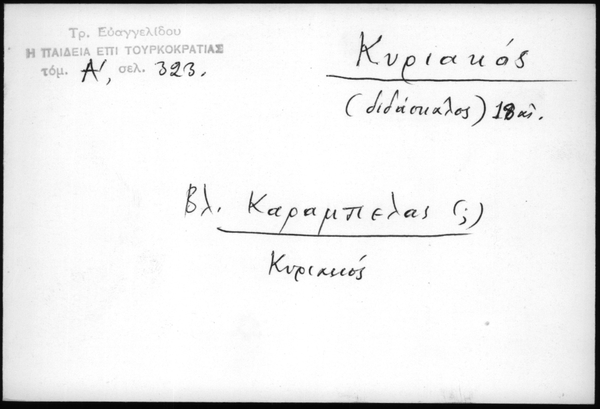 Τρ. Εὐαγγελίδου
Η ΠΑΙΔΕΙΑ ΕΠΙ ΤΟΥΡΚΟΚΡΑΤΙΑΣ
τόμ. Α', σελ. 323.
Κυριακός
(διδάσκαλος) 18 αἰ.
Βλ. Καραμπελας (;)
Κυριακός